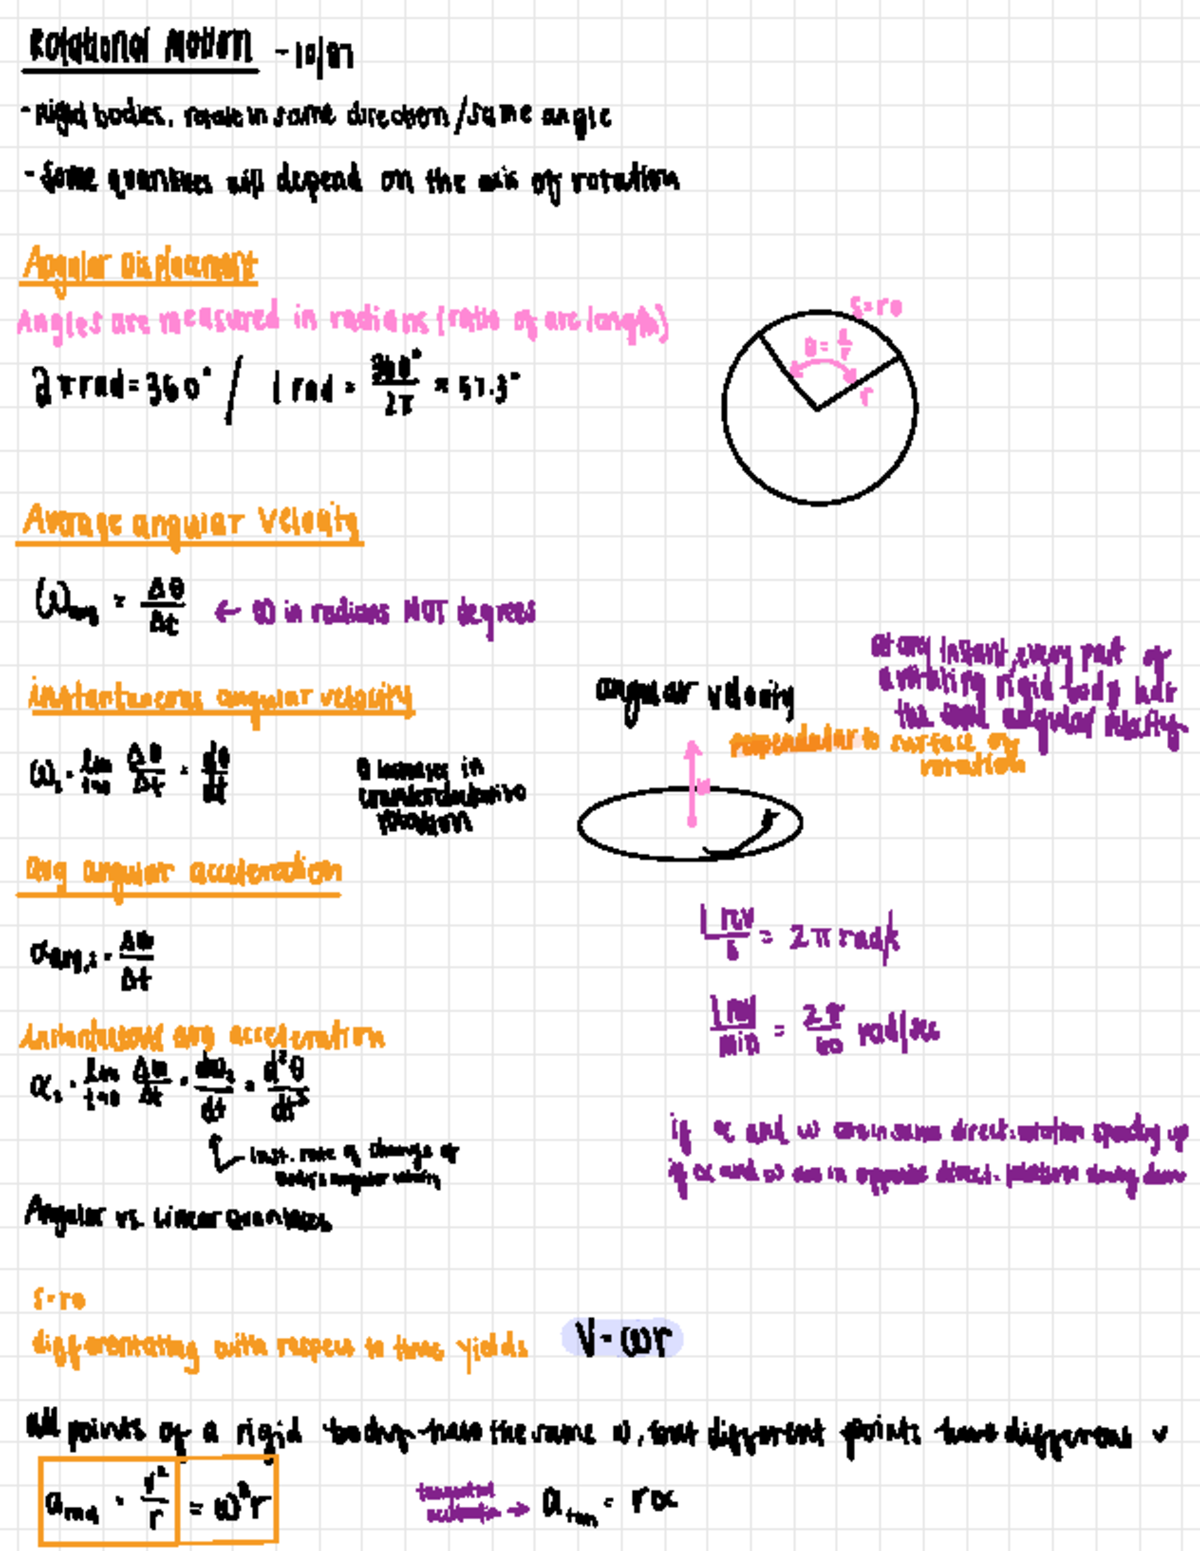 Rotational Motion - 10/07
- Rigid bodies, rotate in same direction/same angle
- Some quantities will depend on the axis of rotation
Angular Displacement
Angles are measured in radians (ratio of arc length)
2πrad = 360° / 1 rad = 360°/2π = 57.3°
s=rθ
θ = s/r
r
Average angular velocity
ω avg = Δθ/Δt ← θ in radians NOT degrees
at any instant, every part of
a rotating rigid body has
the same angular velocity
instantaneous angular velocity
angular velocity
perpendicular to surface of
rotation
ω
ωz = lim t→0 Δθ/Δt = dθ/dt
θ increases in
counterclockwise
rotation
avg angular acceleration
α avg,z = Δω/Δt
1 rev/s = 2π rad/s
1 rev/min = 2π/60 rad/sec
instantaneous avg acceleration
αz = lim t→0 Δω/Δt = dωz/dt = d²θ/dt²
inst. rate of change of
body's angular velocity
if α and ω are in same direct. rotation speeding up
if α and ω are in opposite direct. rotation slowing down
Angular vs. Linear Quantities
s=rθ
differentiating with respect to time yields V = ωr
all points of a rigid body have the same ω, but different points have different v
a rad = v²/r = ω²r
tangential
acceleration → a tan = rα